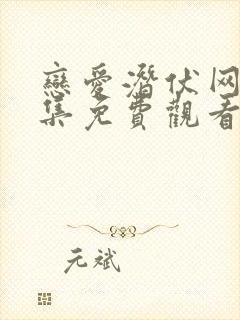 戀愛潛伏网
集免費觀看
元斌